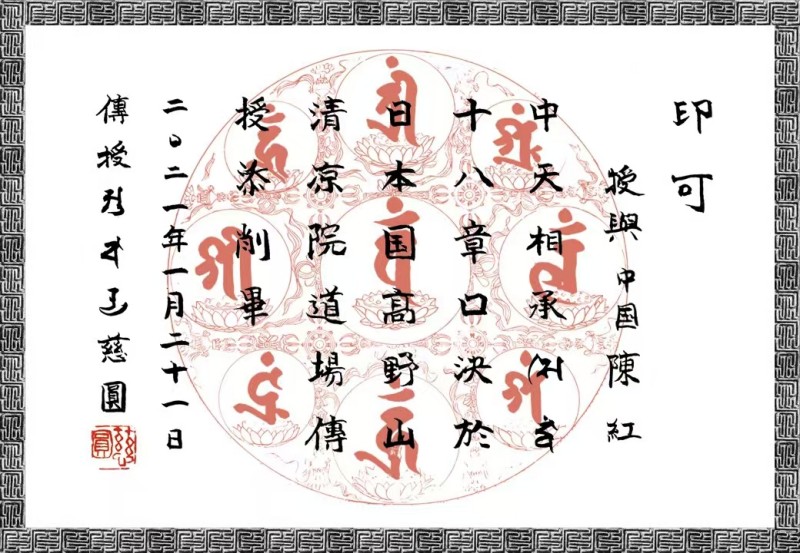 印可
授與中国陳紅
中天相承
十八章口決於
日本国高野山
清凉院道場傳
授添削畢
二〇二一年一月二十一日
傳授慈圓
慈圓